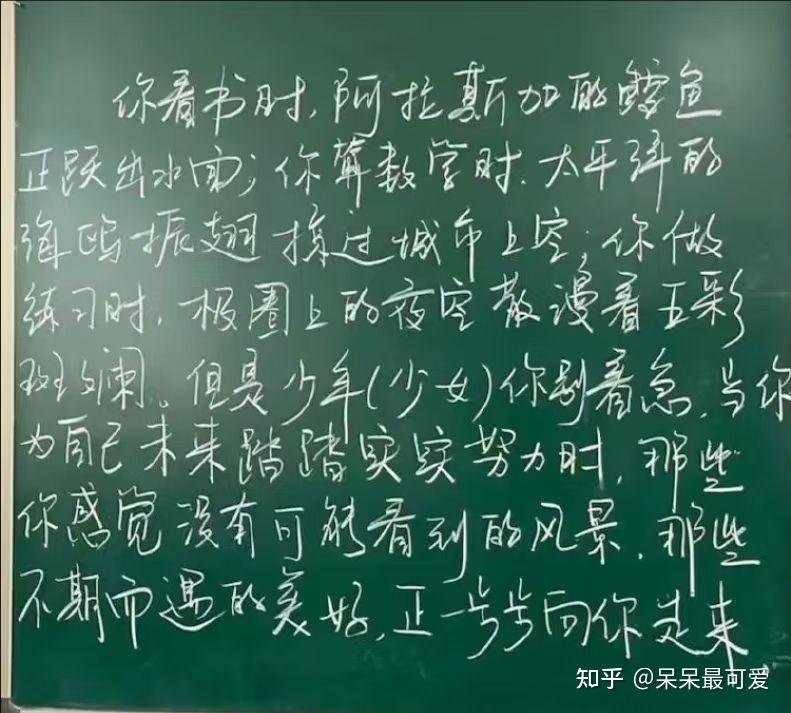 你看书时,阿拉斯加的鳕鱼
正跃出水面;你算数学时,太平洋的
海鸥振翅掠过城市上空;你做
练习时,极圈上的夜空散漫着五彩
斑斓。但是少年(少女)你别着急,当你
为自己未来踏踏实实努力时,那些
你感觉没有可能看到的风景,那些
不期而遇的美好,正一步步向你走来.
知乎 @呆呆最可爱